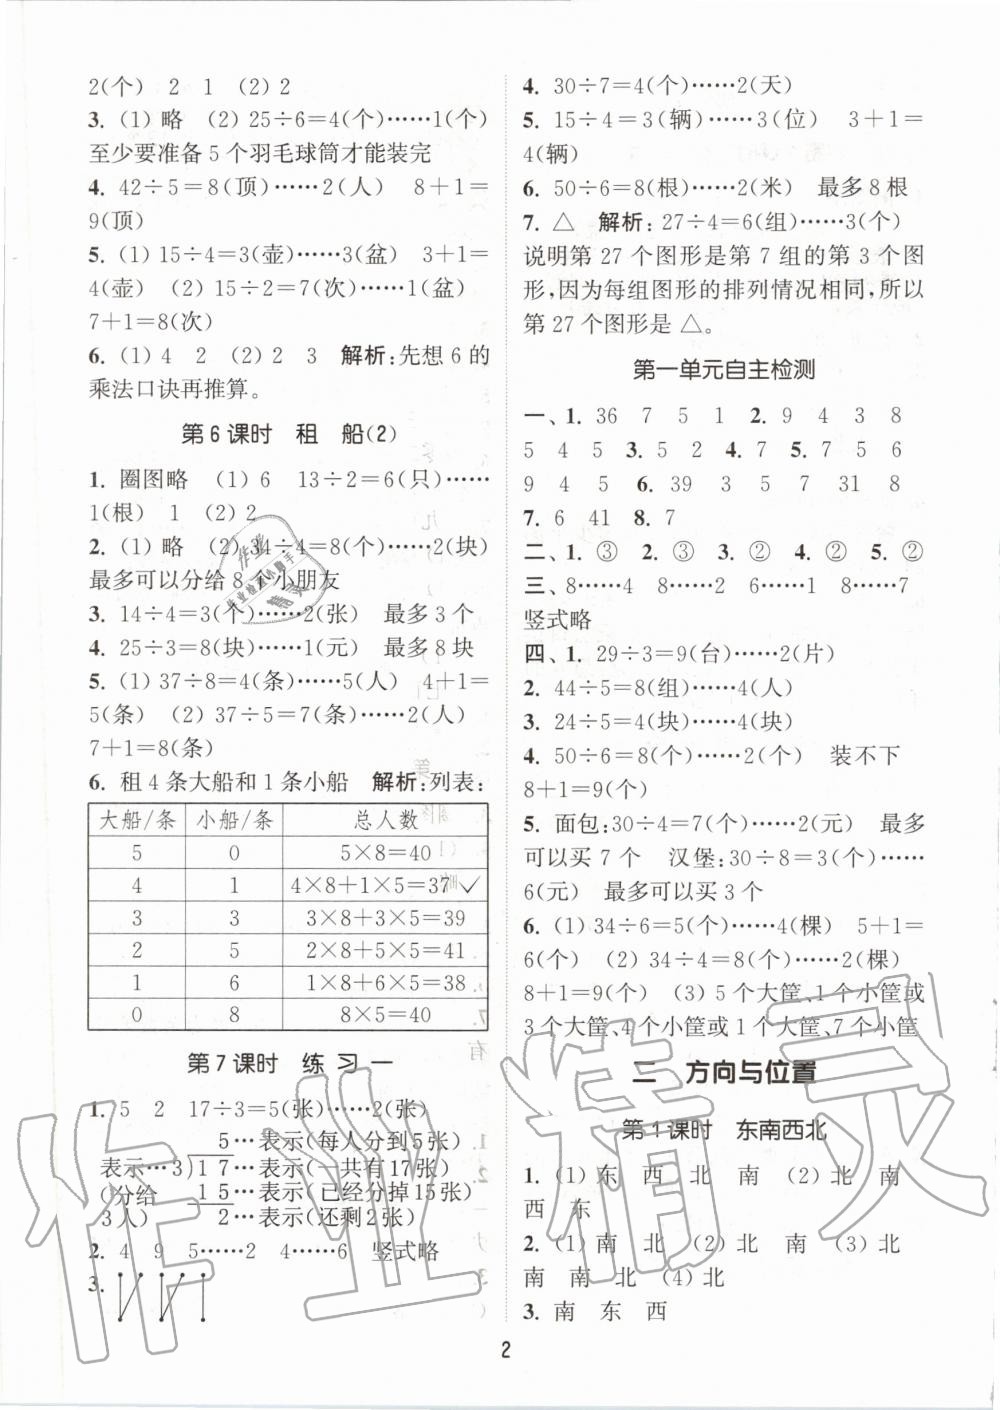 2(个)　2　1　(2) 2
3. (1) 略　(2) 25÷6=4(个)……1(个)
至少要准备 5 个羽毛球筒才能装完
4. 42÷5=8(顶)……2(人)　8+1=
9(顶)
5. (1) 15÷4=3(壶)……3(盆)　3+1=
4(壶)　(2) 15÷2=7(次)……1(盆)
7+1=8(次)
6. (1) 4　2　(2) 2　3　解析:先想 6 的
乘法口诀再推算。
第 6 课时　租　船(2)
1. 圈图略　(1) 6　13÷2=6(只)……
1(根)　1　(2) 2
2. (1) 略　(2) 34÷4=8(块)……2(块)
最多可以分给 8 个小朋友
3. 14÷4=3(个)……2(张)　最多 3 个
4. 25÷3=8(块)……1(元)　最多 8 块
5. (1) 37÷8=4(条)……5(人)　4+1=
5(条)　(2) 37÷5=7(条)……2(人)
7+1=8(条)
6. 租 4 条大船和 1 条小船　解析:列表:
大船/条　小船/条　总人数
5　0　5×8=40
4　1　4×8+1×5=37 ✓
3　3　3×8+3×5=39
2　5　2×8+5×5=41
1　6　1×8+6×5=38
0　8　8×5=40
第 7 课时　练 习 一
1. 5　2　17÷3=5(张)……2(张)
5…表示(每人分到5张)
表示…3)17…表示(一共有17张)
(分给　15…表示(已经分掉15张)
3人)　2…表示(还剩2张)
2. 4　9　5……2　4……6　竖式略
3.
4. 30÷7=4(个)……2(天)
5. 15÷4=3(辆)……3(位)　3+1=
4(辆)
6. 50÷6=8(根)……2(米)　最多 8 根
7. △　解析:27÷4=6(组)……3(个)
说明第 27 个图形是第 7 组的第 3 个图
形,因为每组图形的排列情况相同,所以
第 27 个图形是 △。
第一单元自主检测
一、1. 36　7　5　1　2. 9　4　3　8
5　4　5　3. 5　4　4. 7　5. 7　5　6
9　4　5　6. 39　3　5　7　31　8
7. 6　41　8. 7
二、1. ③　2. ③　3. ②　4. ②　5. ②
三、8……4　8……2　6……1　8……7
竖式略
四、1. 29÷3=9(台)……2(片)
2. 44÷5=8(组)……4(人)
3. 24÷5=4(块)……4(块)
4. 50÷6=8(个)……2(个)　装不下
8+1=9(个)
5. 面包:30÷4=7(个)……2(元)　最多
可以买 7 个　汉堡:30÷8=3(个)……
6(元)　最多可以买 3 个
6. (1) 34÷6=5(个)……4(棵)　5+1=
6(个)　(2) 34÷4=8(个)……2(棵)
8+1=9(个)　(3) 5 个大筐、1 个小筐或
3 个大筐、4 个小筐或 1 个大筐、7 个小筐
二　方向与位置
第 1 课时　东南西北
1. (1) 东　西　北　南　(2) 北　南
西　东
2. (1) 南　北　(2) 北　南　(3) 北
南　南　北　(4) 北
3. 南　东　西
2
作业精灵